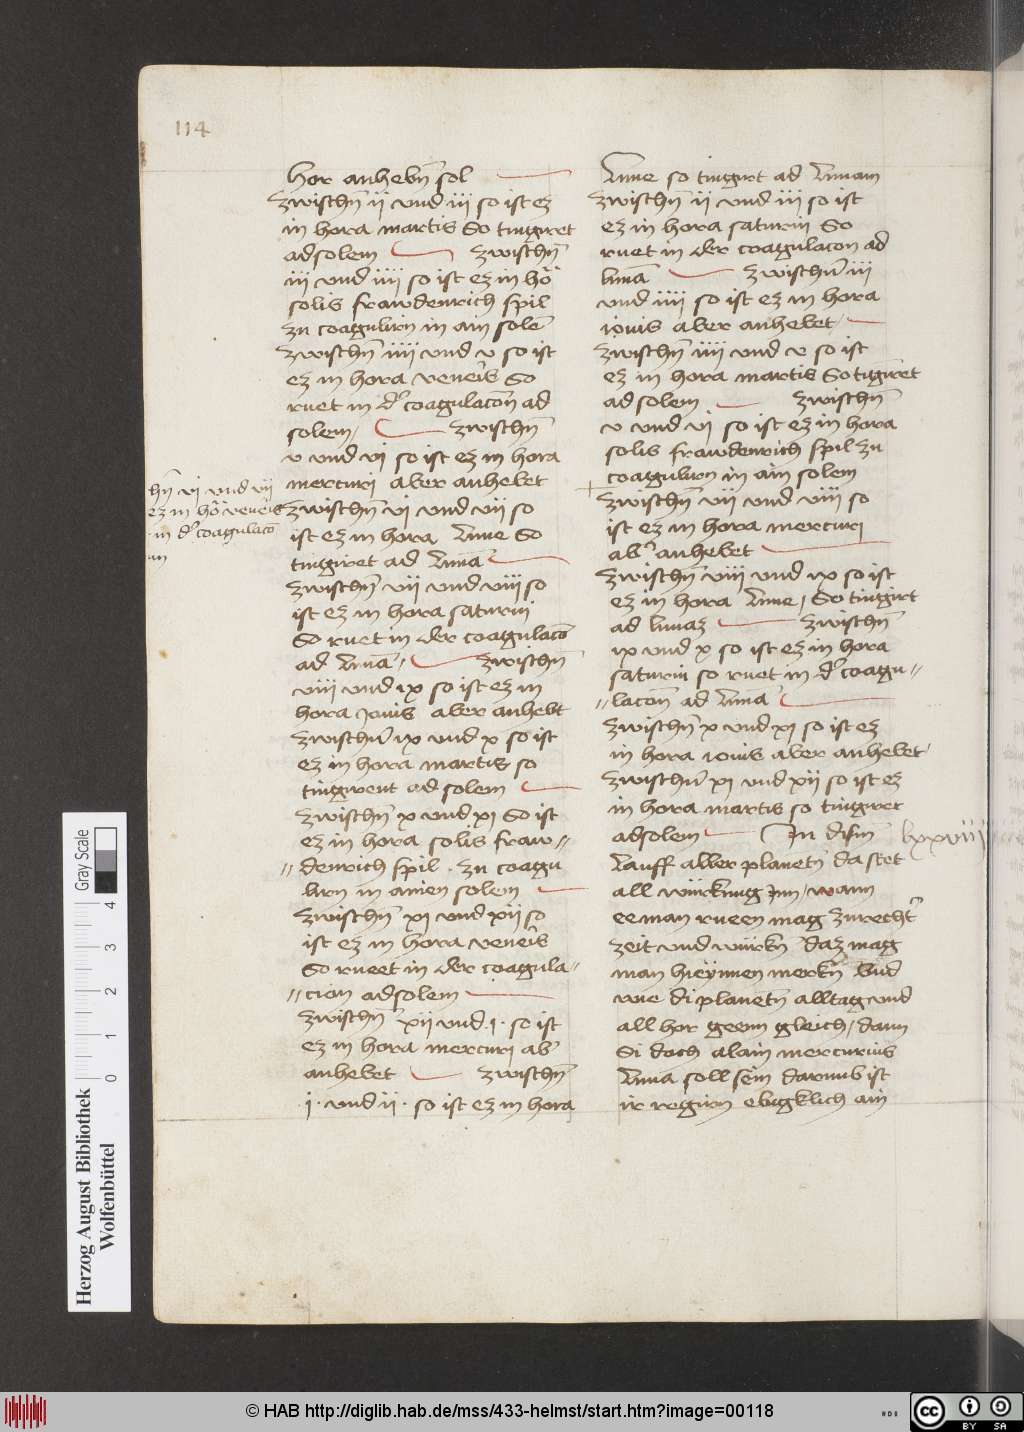 114
hor anhebn̄ sol
zwischn̄ ij vnd iij so ist ez
in hora martis So tingiret
ad solem zwischn̄
iij vnd iiij so ist ez in hō
solis frawdenrich spil
zu coagulirn in ain solē
zwischn̄ iiij vnd v so ist
ez in hora veneris So
ruet in d' coagulacōn ad
solem zwischn̄
v vnd vj so ist ez in hora
mercurj aber anhebet
hn̄ vj vnd vij
ez in hō veneris
in d' coagulacō
zwischn̄ vj vnd vij so
ist ez in hora Lune So
tingiret ad Lunā
zwischn̄ vij vnd viij so
ist ez in hora saturnj
So ruet in der coagulacō
ad Lunā zwischn̄
viij vnd ix so ist ez in
hora Jouis aber anhebt
zwischn̄ ix vnd x so ist
ez in hora martis so
tingirent ad solem
zwischn̄ x vnd xj So ist
ez in hora solis fraw〃
〃denrich spil · zu coagu
lirn in ainen solem
zwischn̄ xj vnd xij so
ist ez in hora veneris
So rueet in der coagula〃
〃cion ad solem
zwischn̄ xij vnd · j · so ist
ez in hora mercurj ab'
anhebet zwischn̄
· j · vnd ij · so ist ez in hora
Lune so tingirt ad Lunam
zwischn̄ ij vnd iij so ist
ez in hora saturnj So
ruet in der coagulacon ad
lunā zwischn̄ iij
vnd iiij so ist ez in hora
iouis aber anhebet
zwischn̄ iiij vnd v so ist
ez in hora martis So tīgiret
ad solem zwischn̄
v vnd vj so ist ez in hora
solis frawdenrich spil zu
coagulirn in ain solem
zwischn̄ vij vnd viij so
ist ez in hora mercurj
ab' anhebet
zwischn̄ viij vnd ix so ist
ez in hora Lune, So tingirt
ad lunaz zwischn̄
ix vnd x so ist ez in hora
saturnj so ruet in d' coagu〃
〃lacōn ad Lunā
zwischn̄ x vnd xj so ist ez
in hora iouis aber anhebet
zwischn̄ xj vnd xij so ist ez
in hora martis so tingiret
ad solem In dism̄ lxxviij
Lauff aller planetn̄ da stet
all würkung Jnn, wann
ee man rueen mag zu recht'
zeit vnd würkn̄ daz mag
man hieÿnnen merkn̄ Vnd
wie di planetn̄ alltag vnd
all hor geenn gleich, dann
Si doch alain mercurius
Lunā soll sein darumb ist
ir regirn ebigklich ain
Herzog August Bibliothek
Wolfenbüttel
Gray Scale
0 1 2 3 4
© HAB http://diglib.hab.de/mss/433-helmst/start.htm?image=00118
HAB
cc BY SA